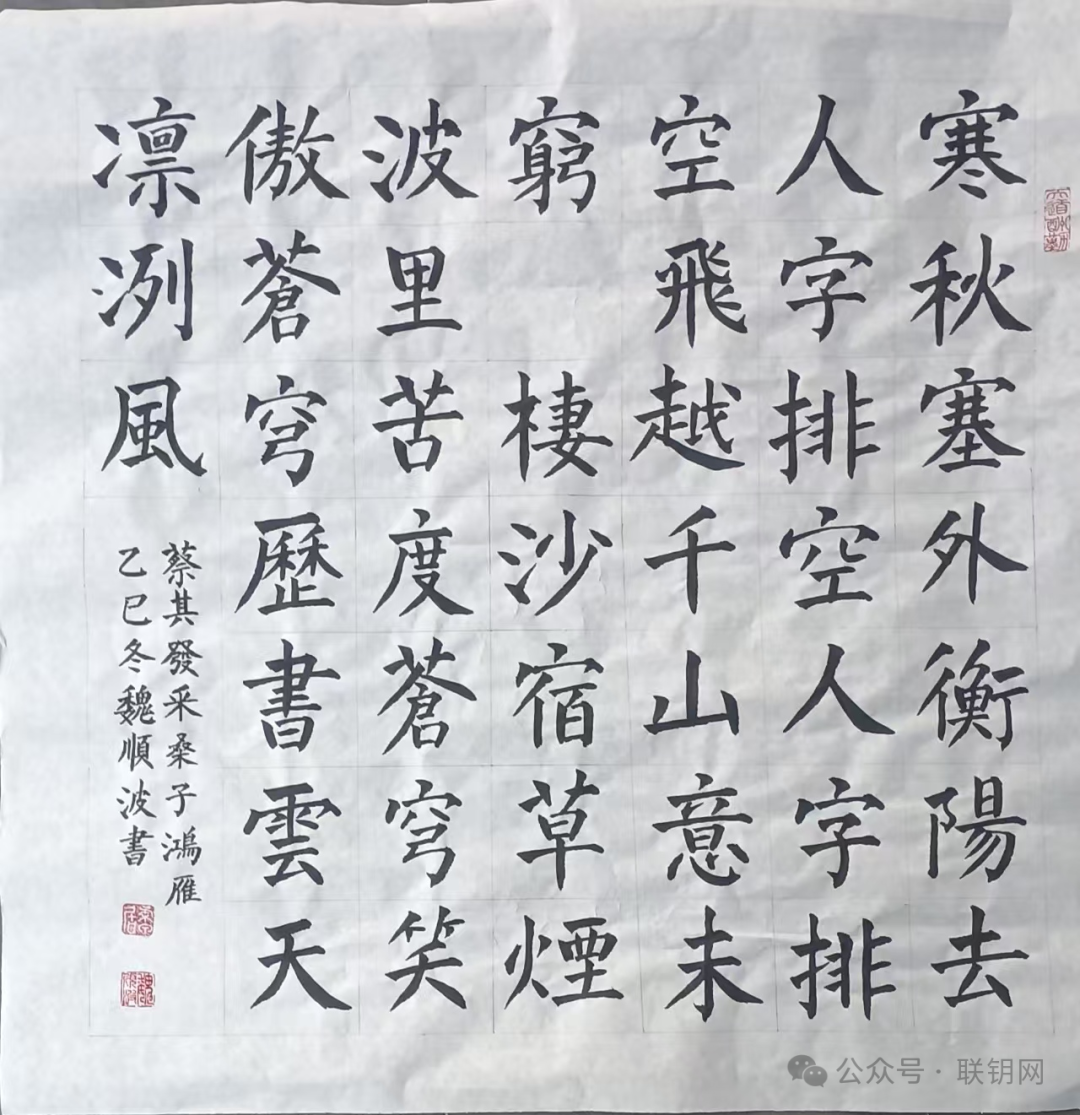 寒秋塞外衡陽去
人字排空人字排
空飛越千山意未
窮 棲沙宿草煙
波里苦度蒼穹笑
傲蒼穹歷書雲天
凛冽風
蔡其發采桑子鴻雁
乙巳冬魏順波書
公众号·联钥网